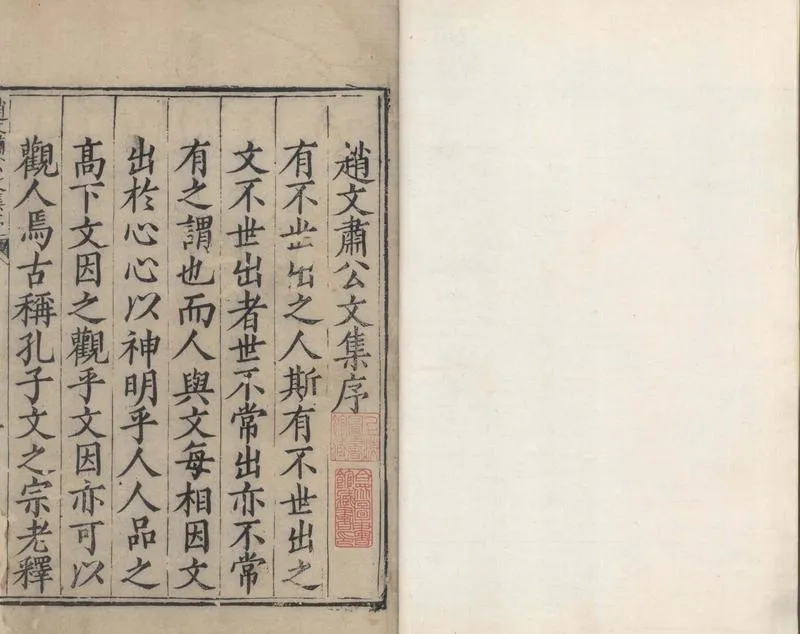 趙文肅公文集序
有不世出之人斯有不世出之
文不世出者世不常出亦不常
有之謂也而人與文每相因文
出於心心以神明乎人人品之
高下文因之觀乎文因亦可以
觀人焉古稱孔子文之宗老釋